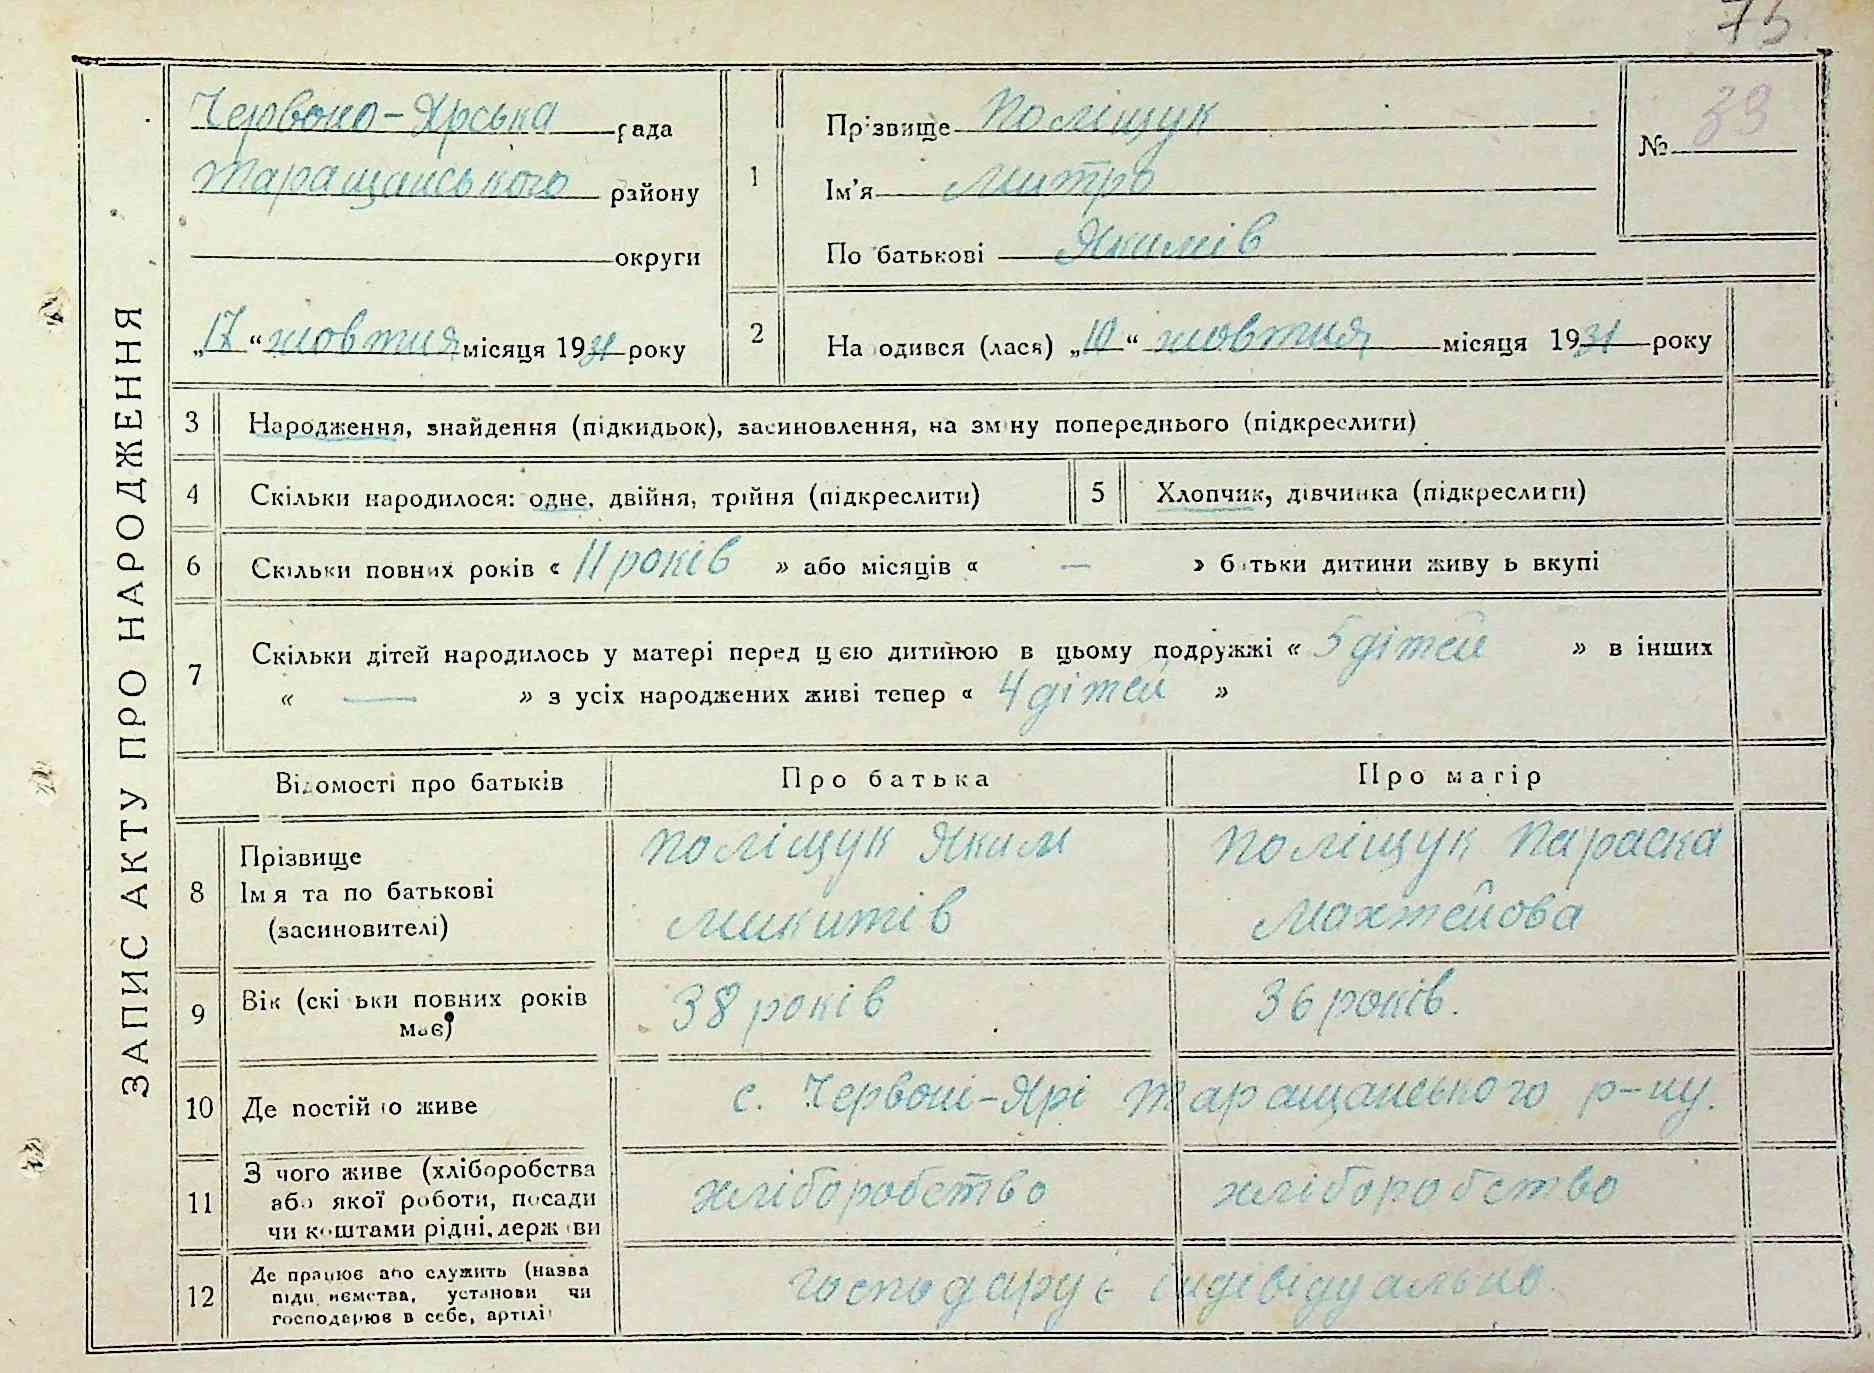 75
ЗАПИС АКТУ ПРО НАРОДЖЕННЯ
Червоно-Ярська рада
Таращанського району
округи
„17“ жовтня місяця 1931 року
1
Прізвище Поліщук
Ім'я Митро
По батькові Якимів
№ 39
2
Народився (лася) „10“ жовтня місяця 1931 року
3 Народження, знайдення (підкидьок), засиновлення, на зміну попереднього (підкреслити)
4 Скільки народилося: одне, двійня, трійня (підкреслити) 5 Хлопчик, дівчинка (підкреслити)
6 Скільки повних років « 11 років » або місяців « — » батьки дитини живуть вкупі
7 Скільки дітей народилось у матері перед цією дитиною в цьому подружжі « 5 дітей » в інших
« — » з усіх народжених живі тепер « 4 дітей »
Відомості про батьків Про батька Про матір
8 Прізвище
Імя та по батькові
(засиновителі)
Поліщук Яким
Микитів
Поліщук Параска
Махтейова
9 Вік (скільки повних років
має)
38 років 36 років.
10 Де постійно живе с. Червоні-Ярі Таращанського р-ну.
11 З чого живе (хліборобства
або якої роботи, посади
чи коштами рідні, держави
хліборобство хліборобство
12 Де працює або служить (назва
підприємства, установи чи
господарює в себе, артілі)
господарує індівідуально.